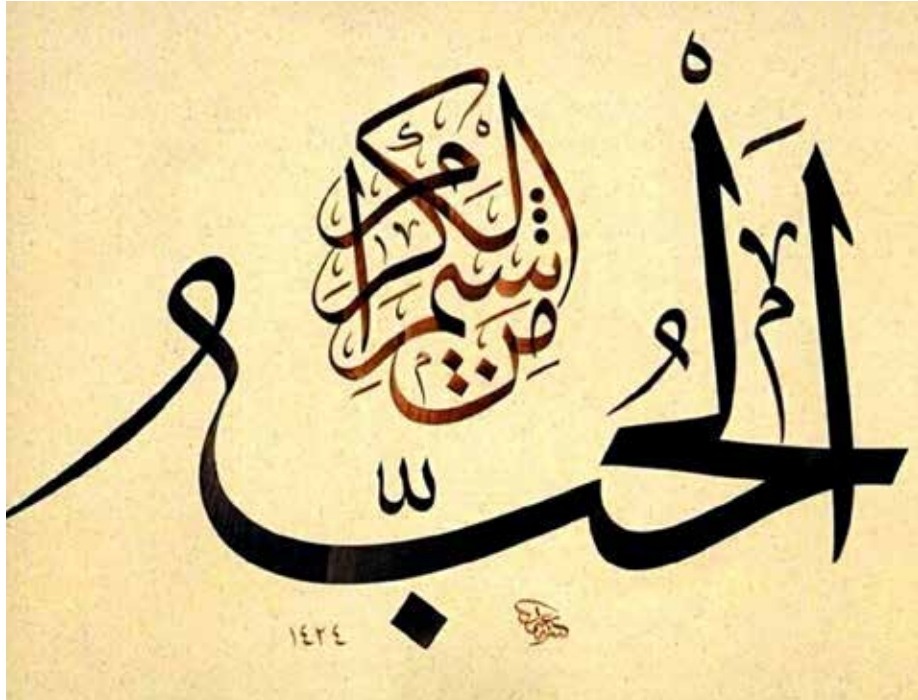 الْحُبُّ
مِنْ شِيَمِ الْكِرَامِ
١٤٢٤